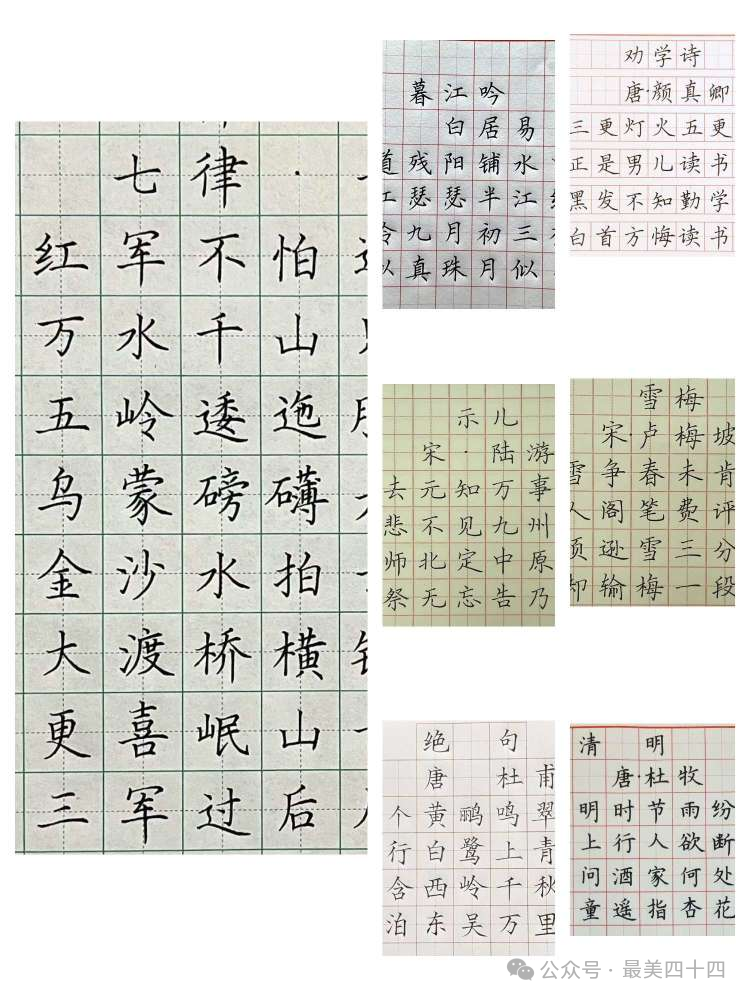 七律·
红军不怕
万水千山
五岭逶迤
乌蒙磅礴
金沙水拍
大渡桥横
更喜岷山
三军过后
暮江吟
白居易
道残阳铺水
瑟瑟半江
九月初三
真珠月似
劝学诗
唐·颜真卿
三更灯火五更
正是男儿读书
黑发不知勤学
白首方悔读书
示儿
宋·陆游
去元知万事
悲不见九州
师北定中原
祭无忘告乃
雪梅
宋·卢梅坡
雪争春未肯
人阁笔费评
须逊雪三分
却输梅一段
绝句
唐杜甫
个黄鹂鸣翠
行白鹭上青
含西岭千秋
泊东吴万里
清明
唐·杜牧
明时节雨纷
上行人欲断
问酒家何处
童遥指杏花
公众号·最美四十四